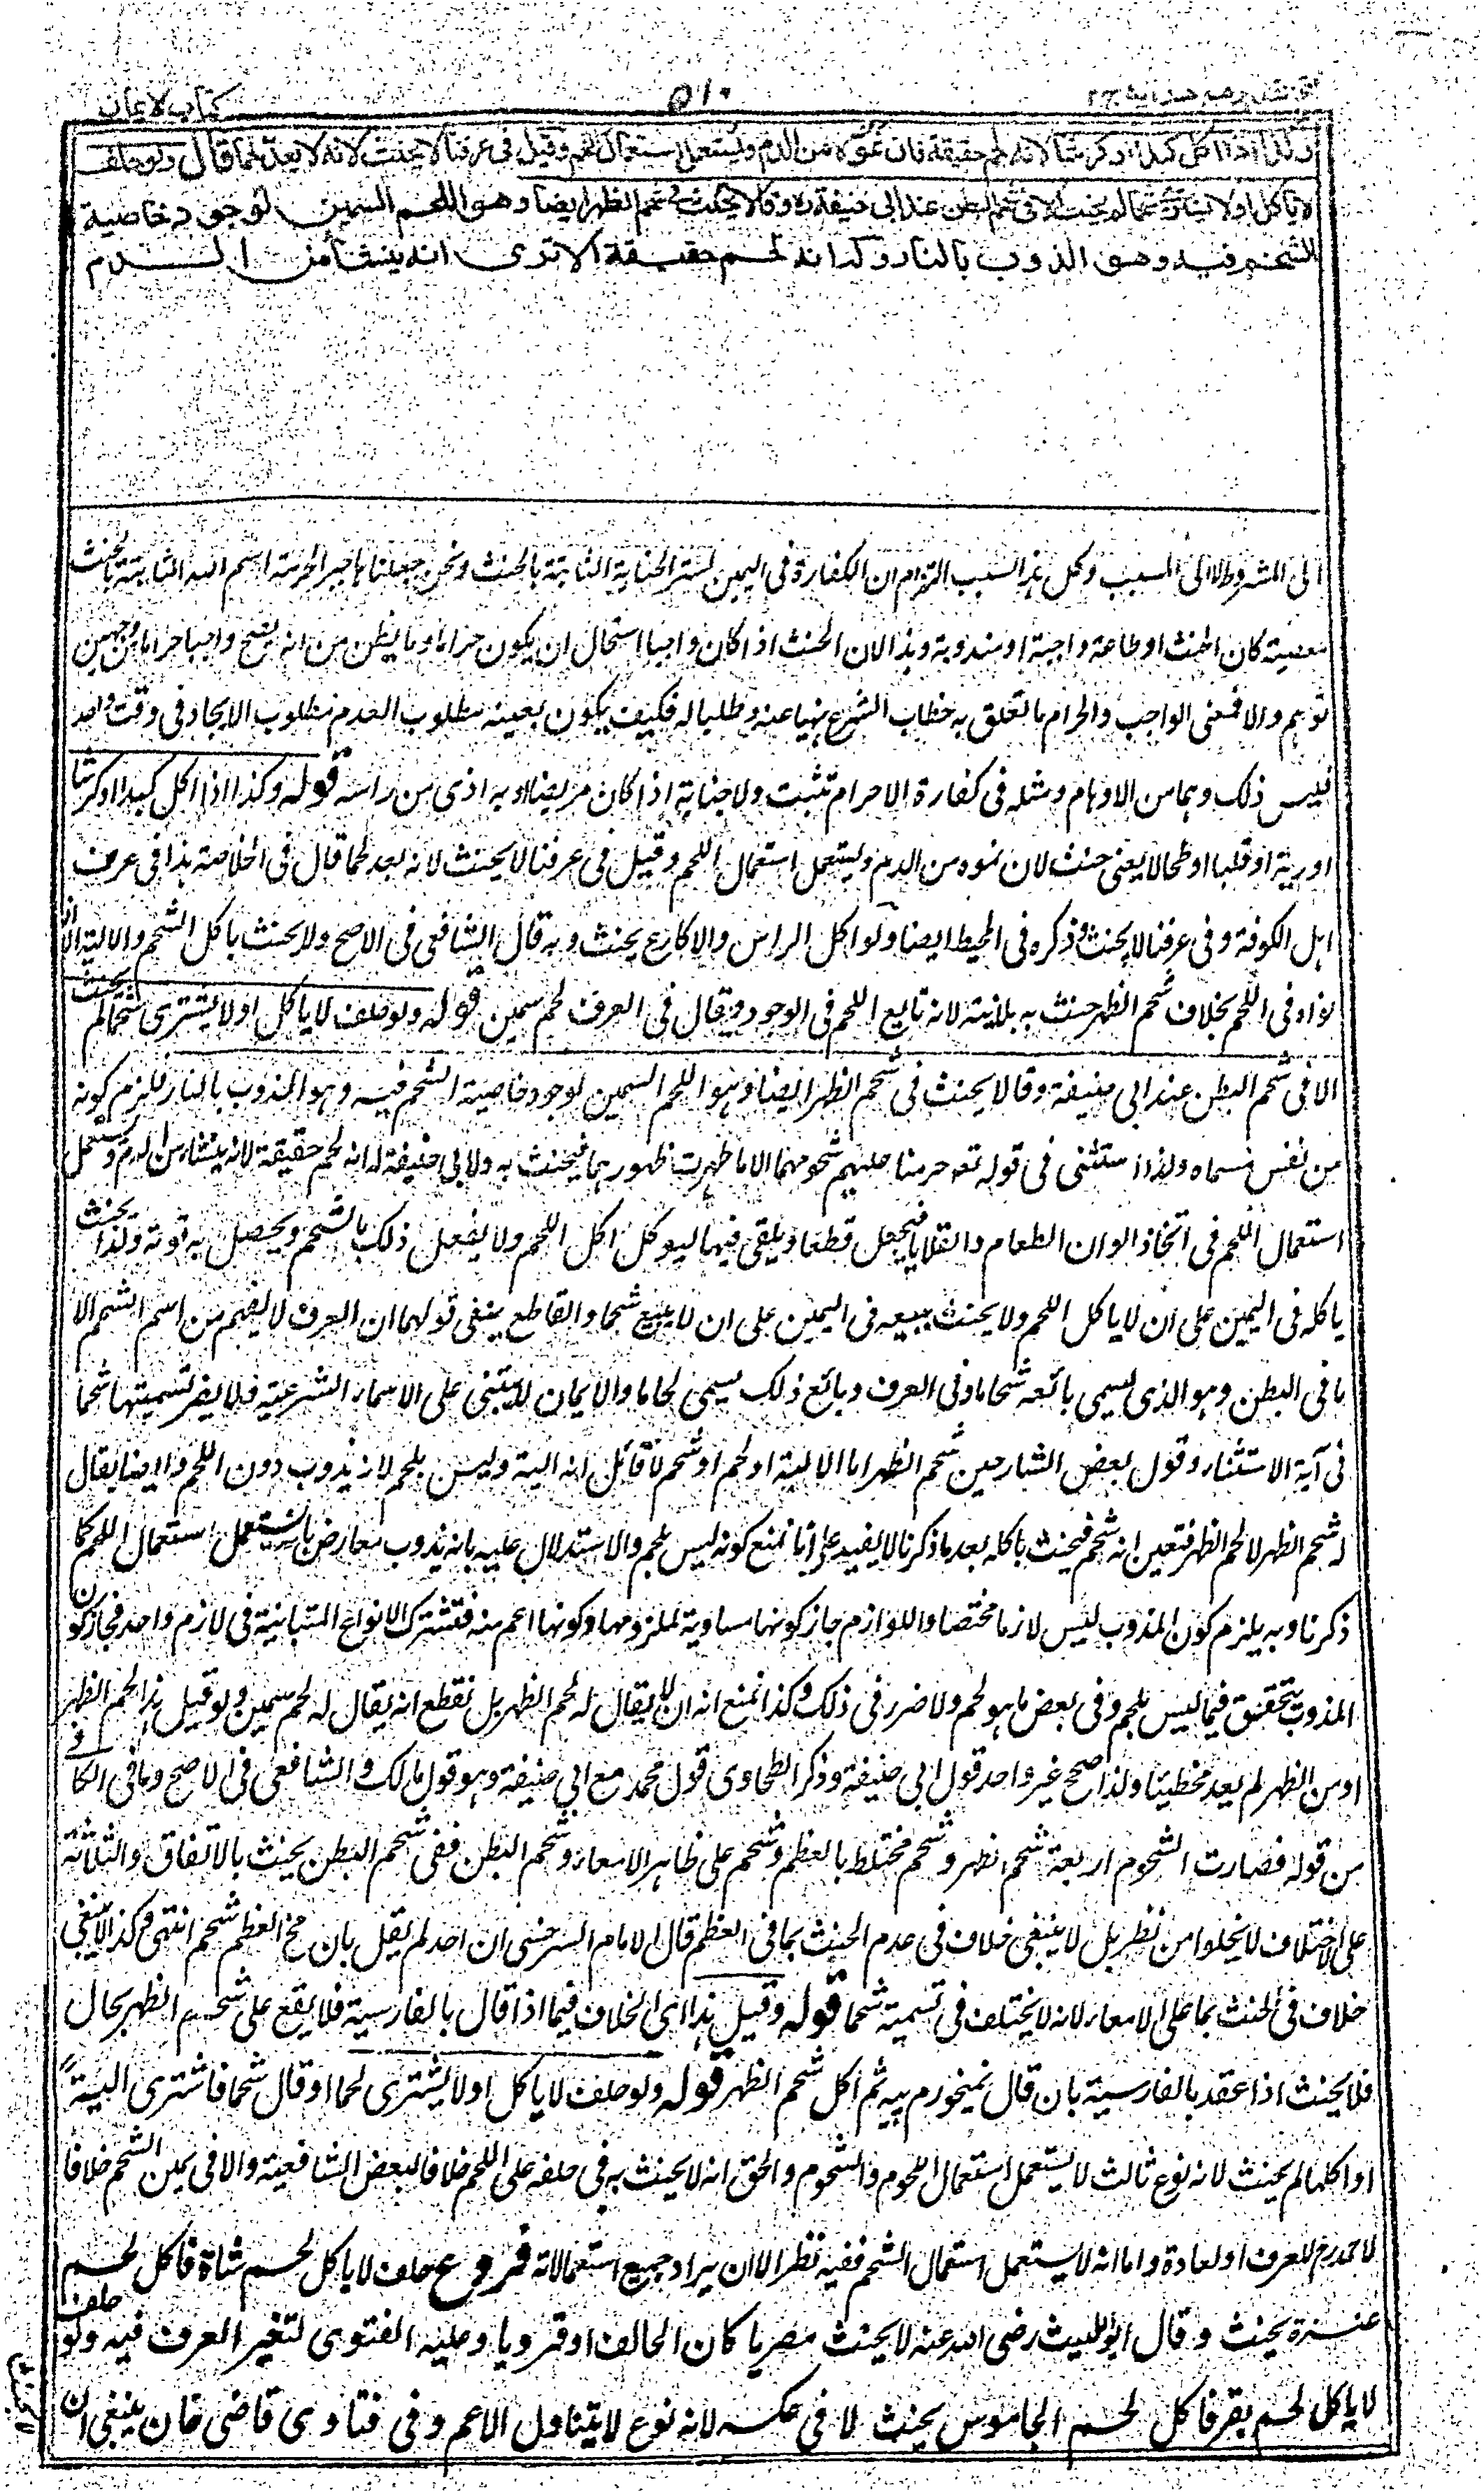 كتاب الايمان
٥١٠
فتح القدير مع هداية ج ٢
وكذا اذا اكل كبدا او كرشا لانه لحم حقيقة فان نموه من الدم ويستعمل استعمال اللحم وقيل فى عرفنا لا يحنث لانه لا يعد لحما قال ولو حلف
لا ياكل او لا يشترى شحما لم يحنث الا فى شحم البطن عند ابى حنيفة رہ وقالا يحنث فى شحم الظهر ايضا وهو اللحم السمين لوجود خاصية
الشحم فيه وهو الذوب بالنار وله انه لحم حقيقة الا ترى انه ينشأ من الدم
الى المشروط لا الى السبب وكل هذا لسبب التزام ان الكفارة فى اليمين لستر الجناية الثابتة بالحنث ونحن جعلناها جبر الحرمة اسم الله الثابتة بالحنث
معصية كان الحنث او طاعة واجبة او مندوبة وهذا لان الحنث اذا كان واجبا استحال ان يكون حراما وما يظن من انه يصح واجبا حراما من جهين
توهم والا فمعنى الواجب والحرام ما تعلق به خطاب الشرع نهيا عنه وطلبا له فكيف يكون بعينه مطلوب العدم مطلوب الايجاد فى وقت واحد
فليس ذلك وهما من الاوهام ومثله فى كفارة الاحرام تثبت ولا جناية اذا كان مريضا او به اذى من راسه قوله وكذا اذا اكل كبدا او كرشا
او رية او قلبا او طحالا يعنى حنث لان نموه من الدم ويستعمل استعمال اللحم وقيل فى عرفنا لا يحنث لانه لا يعد لحما قال فى الخلاصة هذا فى عرف
اهل الكوفة وفى عرفنا لا يحنث وذكره فى المحيط ايضا ولو اكل الراس والاكارع يحنث وبه قال الشافعى فى الاصح ولا يحنث باكل الشحم والالية الا ان
نواه فى اللحم بخلاف شحم الظهر حنث به بلا نية لانه تابع اللحم فى الوجود ويقال فى العرف لحم سمين قوله ولو حلف لا ياكل او لا يشترى شحما لم يحنث
الا فى شحم البطن عند ابى حنيفة وقالا يحنث فى شحم الظهر ايضا وهو اللحم السمين لوجود خاصية الشحم فيه وهو الذوب بالنار فلزم كونه
من نفس مسماه ولذا استثنى فى قوله تعه حرمنا عليهم شحومهما الا ما حملت ظهورهما فيحنث به ولابى حنيفة له انه لحم حقيقة لانه ينشأ من الدم ويستعمل
استعمال اللحم فى اتخاذ الوان الطعام والقلايا فيجعل قطعا ويلقى فيها ليوكل اكل اللحم ولا يفعل ذلك بالشحم ويحصل به قوته ولذا يحنث
ياكله فى اليمين على ان لا ياكل اللحم ولا يحنث ببيعه فى اليمين على ان لا يبيع شحما والقاطع ينفى قولهما ان العرف لا يفهم من اسم الشحم الا
ما فى البطن وهو الذى يسمى بائعه شحاما فى العرف وبائع ذلك يسمى لحاما والايمان لا تبتنى على الاسماء الشرعية فلا يضر تسميتها شحما
فى آية الاستثناء وقول بعض الشارحين شحم الظهر اما الية او لحم او شحم لا قائل انه الية وليس بلحم لانه يذوب دون اللحم وايضا يقال
له شحم الظهر لا لحم الظهر فتعين انه شحم فيحنث باكله بعد ما ذكرنا لا يفيد على انا نمنع كونه ليس بلحم والاستدلال عليه بانه يذوب معارض بانه يستعمل استعمال اللحم كما
ذكرنا وبه يلزم كون الذوب ليس لازما مختصا واللوازم جاز كونها مساوية لملزومها وكونها اعم منه فتشترك الانواع المتباينة فى لازم واحد فجاز كون
الذوب يتحقق فيما ليس بلحم وفى بعض ما هو لحم ولا ضرر فى ذلك وكذا نمنع انه لا يقال له لحم الظهر بل نقطع انه يقال له لحم سمين ولو قيل هذا لحم الظهر
او من الظهر لم يعد مخطئا ولذا صحح غير واحد قول ابى حنيفة وذكر الطحاوى قول محمد مع ابى حنيفة وهو قول مالك والشافعى فى الاصح وما فى الكافى
من قوله فصارت الشحوم اربعة شحم الظهر وشحم مختلط بالعظم وشحم على ظاهر الامعاء وشحم البطن ففى شحم البطن يحنث بالاتفاق والثلاثة
على الاختلاف لا يخلوا من نظر بل لا ينبغى خلاف فى عدم الحنث بما فى العظم قال الامام السرخسى ان احدا لم يقل بان مخ العظم شحم انتهى وكذا لا ينبغى
خلاف فى الحنث بما على الامعاء لانه لا يختلف فى تسميته شحما قوله وقيل هذا اى الخلاف فيما اذا قال بالفارسية فلا يقع على شحم الظهر بحال
فلا يحنث اذا عقد بالفارسية بان قال نميخورم پيه ثم اكل شحم الظهر قوله ولو حلف لا ياكل او لا يشترى لحما او قال شحما فاشترى الية
او اكلها لم يحنث لانه نوع ثالث لا يستعمل استعمال اللحوم والشحوم والحق انه لا يحنث به فى حلفه على اللحم خلافا لبعض الشافعية والا فى يمين الشحم خلافا
لاحمد رح للعرف او لعادة واما انه لا يستعمل استعمال الشحم ففيه نظر الا ان يراد جميع استعمالاته فروع حلف لا ياكل لحم شاة فاكل لحم
عنزة يحنث وقال ابو الليث رضى الله عنه لا يحنث مصريا كان الحالف او قرويا وعليه الفتوى لتغير العرف فيه ولو حلف
لا ياكل لحم بقر فاكل لحم الجاموس يحنث لا فى عكسه لانه نوع لا يتناول الاعم وفى فتاوى قاضى خان ينبغى ان